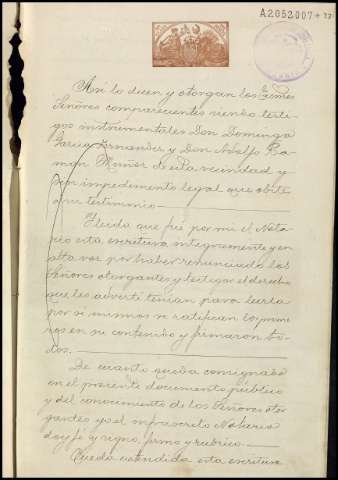 A2052007
Así lo dicen y otorgan los
Señores comparecientes siendo testi-
gos instrumentales Don Domingo
García Fernandez y Don Adolfo Ro-
man Muñoz de esta vecindad y
sin impedimento legal que obste
que testimonio
Y leida que fué por mi el Nota-
rio esta escritura integramente y en
alta voz por haber renunciado los
Señores otorgantes y testigos el derecho
que les advertí tenían para leerla
por sí mismos se ratifican los prime-
ros en su contenido y firmaron to-
dos.
De cuanto queda consignado
en el presente documento público
y del conocimiento de los Señores otor-
gantes yo el infrascrito Notario
doy fé y signo, firmo y rubrico.
Queda estendida esta escritura